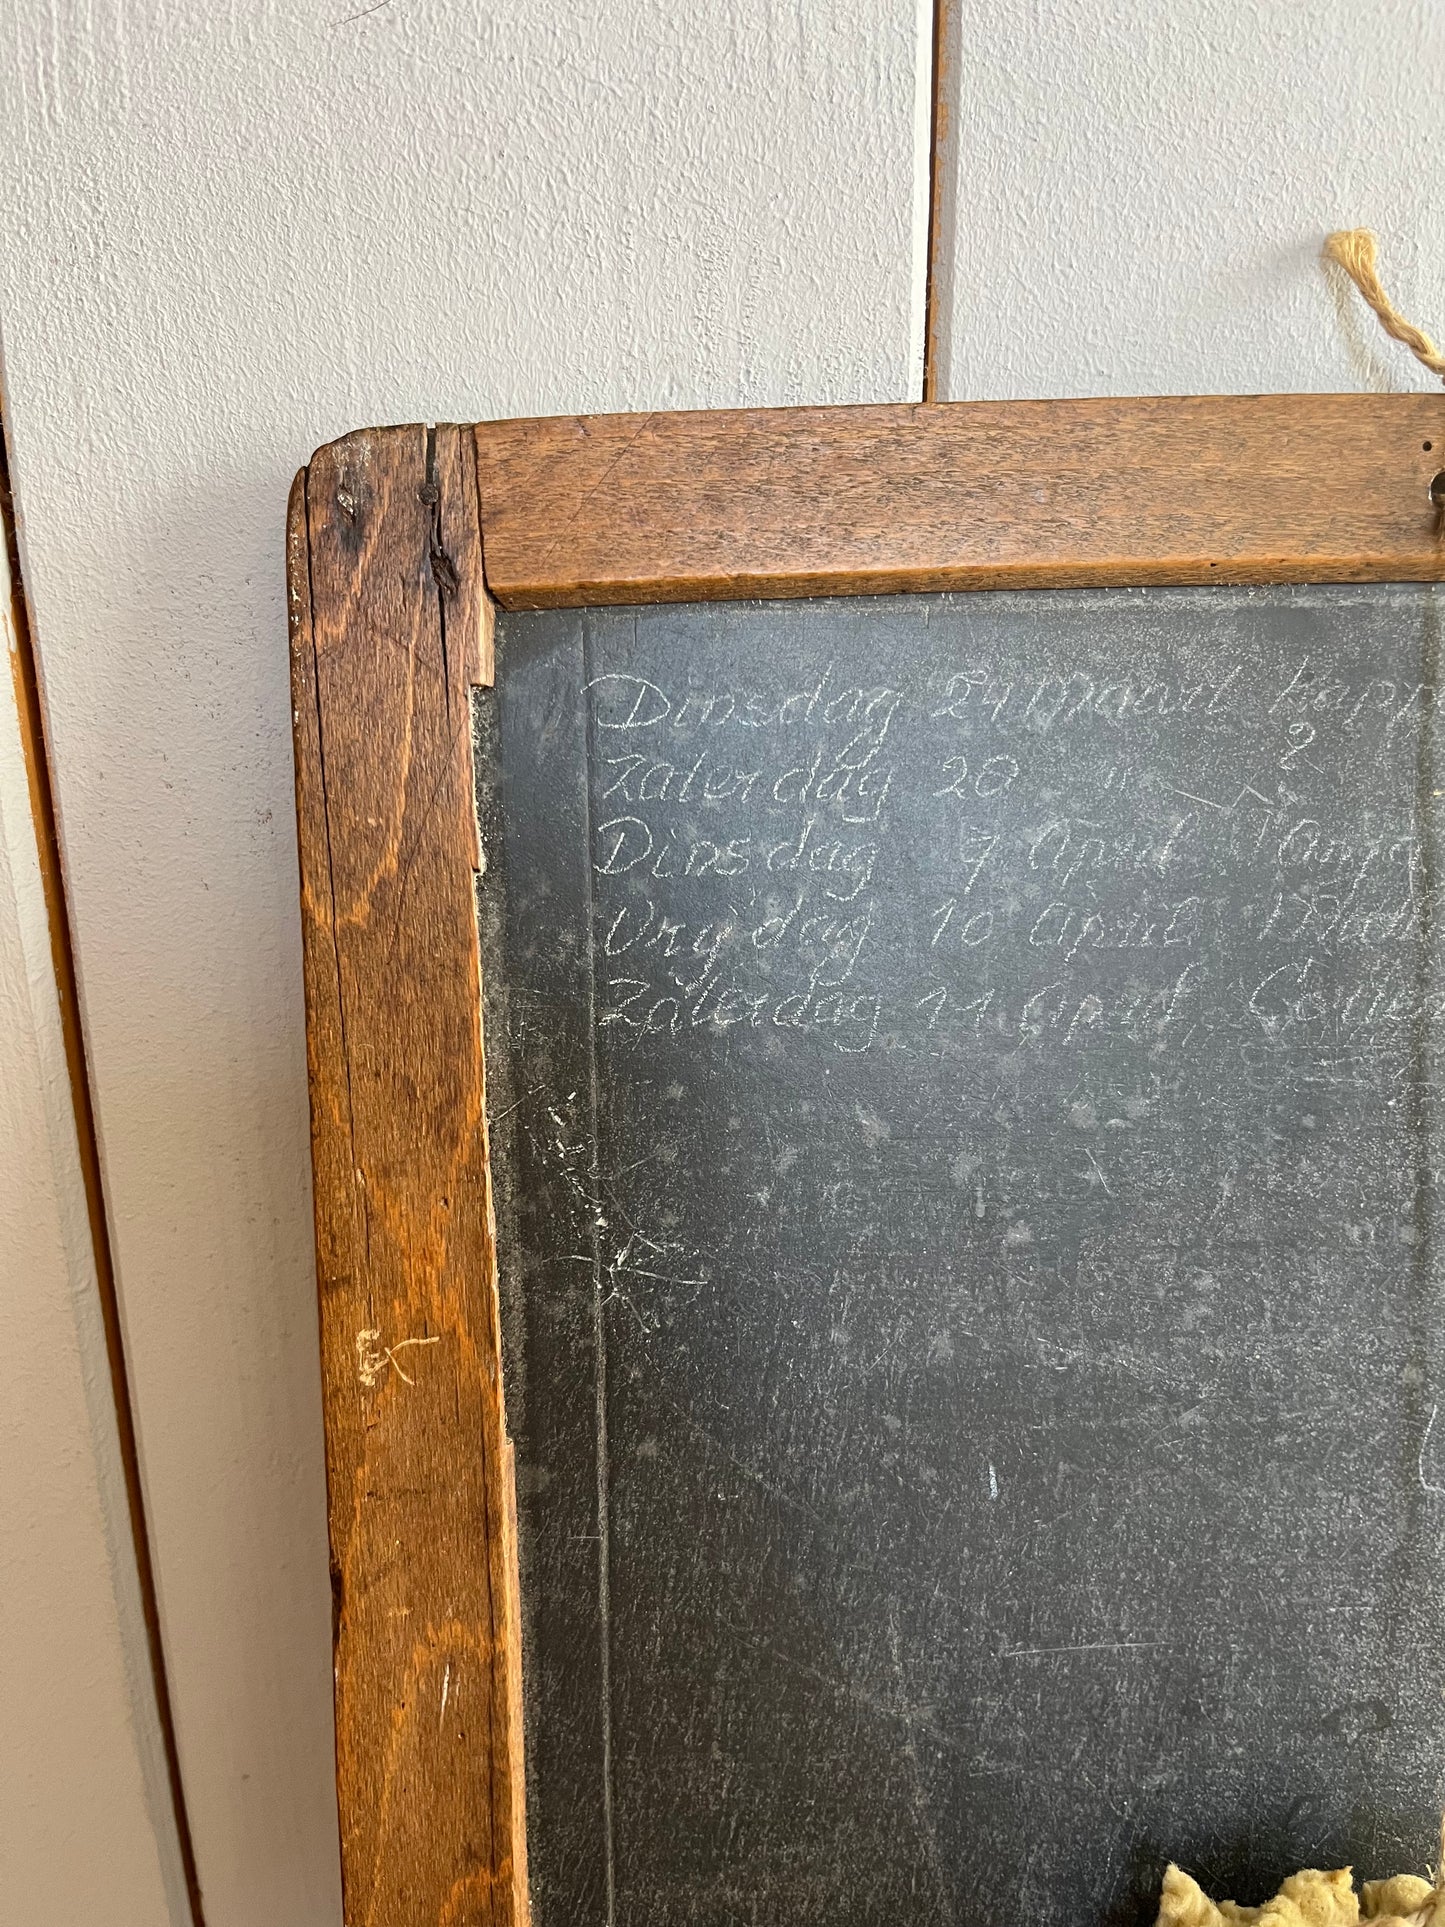 Dinsdag 24 maart Kapp
Zaterdag 28 "
Dinsdag 7 April
Vrydag 10 April
Zaterdag 11 April